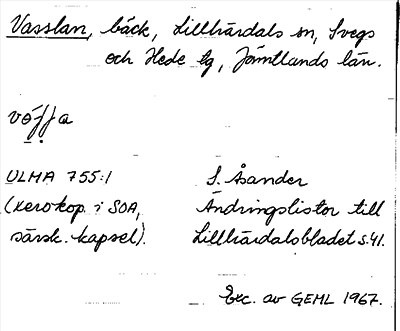 Vasslan, bäck, Lillhärdals sn, Svegs
och Hede tg, Jämtlands län.
ULMA 755:1
S. Åsander
(xerokop. i SOA,
Ändringslistor till
särsk. kapsel).
Lillhärdalsbladet s. 41.
Exc. av GEHL 1967.